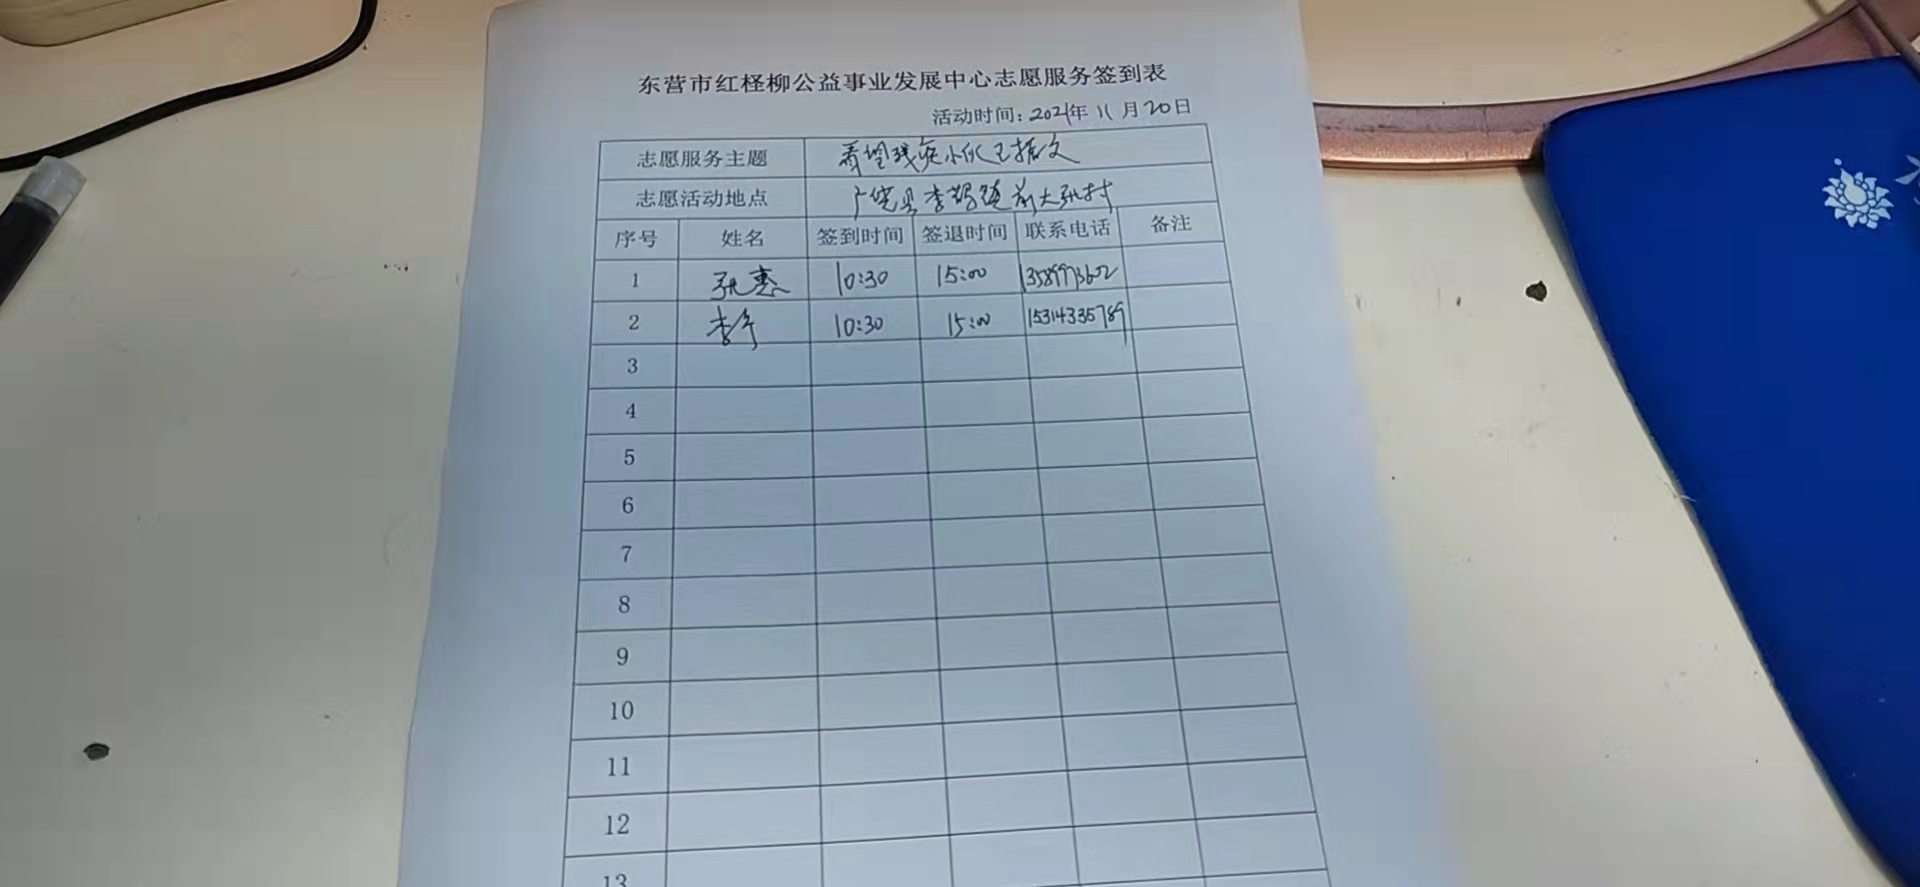 东营市红柽柳公益事业发展中心志愿服务签到表
活动时间：2021年11月20日
志愿服务主题 看望残疾小伙王振文
志愿活动地点 广饶县李鹊镇前大张村
序号 姓名 签到时间 签退时间 联系电话 备注
1 张惠 10:30 15:00
2 李 10:30 15:00 15314335789
3
4
5
6
7
8
9
10
11
12
13